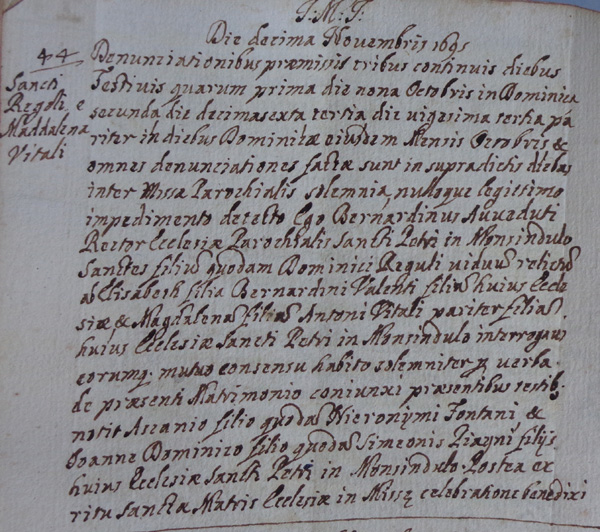 J: M: J:
Die decima Novembris 1695
44
Sancti
Regoli e
Maddalena
Vitali
Denunciationibus præmissis tribus continuis diebus
Festivis quarum prima die nona Octobris in Dominica
secunda die decimasexta tertia die vigesima tertia pa
riter in diebus Dominicæ eiusdem Mensis Octobris &
omnes denunciationes factæ sunt in supradictis diebus
inter Missæ Parochialis solemnia, nulloque legittimo
impedimento detecto Ego Bernardinus Auveduti
Rector Ecclesiæ Parochialis Sancti Petri in Monsindulo
Sanctes filius quodam Dominici Reguli viduus relictus
ab Elisabeth filia Bernardini Valenti filia huius Eccle
siæ, & Magdalena filia Antoni Vitali pariter filia
huius Ecclesiæ Sancti Petri in Monsindulo interrogavi
eorumq. mutuo consensu habito solemniter p verba
de præsenti Matrimonio coniunxi præsentibus testib.
notit Ascanio filio quoda Hieronymi Fontani &
Joanne Dominico filio quoda Simeonis filijs
huius Ecclesiæ Sancti Petri in Monsindulo Postea ex
ritu Sanctæ Matris Ecclesiæ in Missę celebratione benedixi